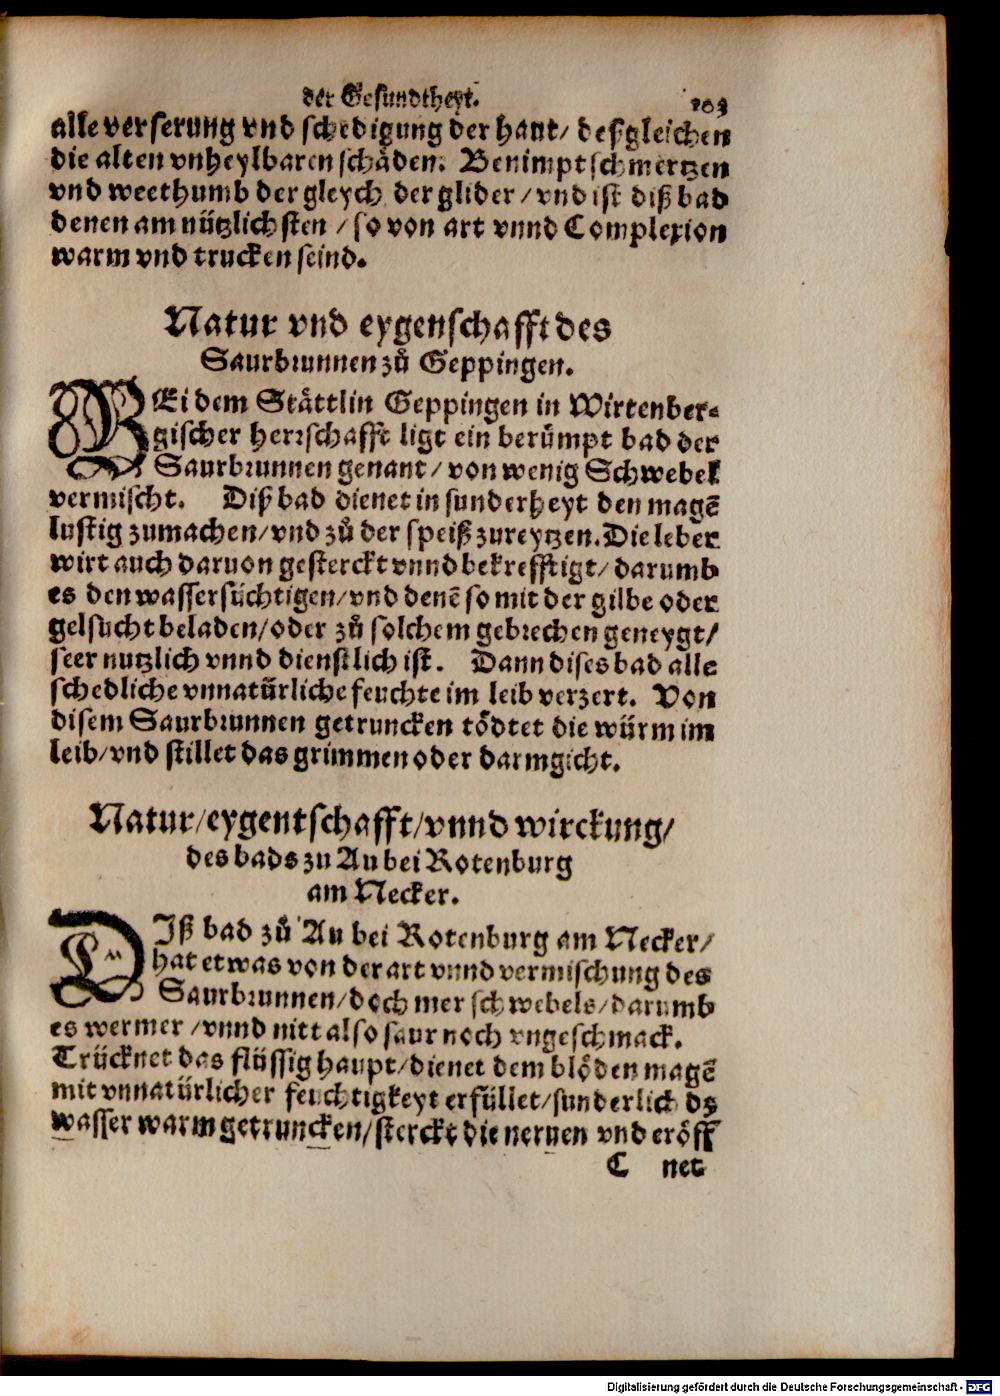 der Gesundtheyt. 103
alle verserung vnd schedigung der haut/ deßgleichen
die alten vnheylbaren schäden. Benimpt schmertzen
vnd weethumb der gleych der glider/ vnd ist diß bad
denen am nützlichsten/ so von art vnnd Complexion
warm vnd trucken seind.
Natur vnd eygenschafft des
Saurbrunnen zů Geppingen.
BEi dem Stättlin Geppingen in Wirtenber-
gischer herrschafft ligt ein berümpt bad der
Saurbrunnen genant/ von wenig Schwebel
vermischt. Diß bad dienet in sunderheyt den magē
lustig zumachen/ vnd zů der speiß zureytzen. Die leber
wirt auch daruon gesterckt vnnd bekrefftigt/ darumb
es den wassersüchtigen/ vnd denē so mit der gilbe oder
gelsucht beladen/ oder zů solchem gebrechen geneygt/
seer nutzlich vnnd dienstlich ist. Dann dises bad alle
schedliche vnnatürliche feuchte im leib verzert. Von
disem Saurbrunnen getruncken tödtet die würm im
leib/ vnd stillet das grimmen oder darmgicht.
Natur/ eygentschafft/ vnnd wirckung/
des bads zu Au bei Rotenburg
am Necker.
DIß bad zů Au bei Rotenburg am Necker/
hat etwas von der art vnnd vermischung des
Saurbrunnen/ doch mer schwebels/ darumb
es wermer/ vnnd nitt also saur noch vngeschmack.
Trücknet das flüssig haupt/ dienet dem blöden magē
mit vnnatürlicher feuchtigkeyt erfüllet/ sunderlich dz
wasser warm getruncken/ sterckt die neruen vnd eröff
C net
Digitalisierung gefördert durch die Deutsche Forschungsgemeinschaft - DFG